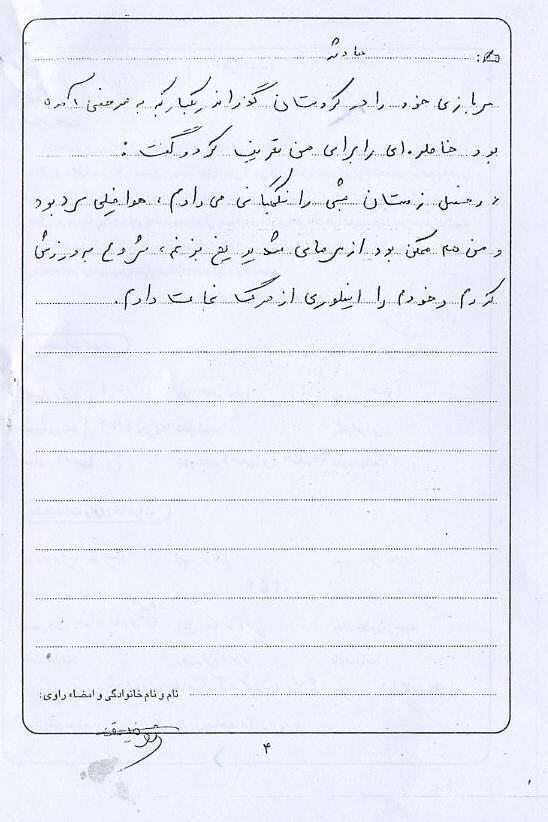 حادثه
سربازی خود را در کردستان گذراند یکبار که به مرخصی آمده
بود خاطره‌ای را برای من تعریف کرد و گفت :
« در فصل زمستان شبی را نگهبانی می دادم ، هوا خیلی سرد بود
و من هم ممکن بود از سرمای شدید یخ بزنم ، شروع به ورزش
کردم و خودم را اینطوری از مرگ نجات دادم .
نام و نام خانوادگی و امضاء راوی:
۴